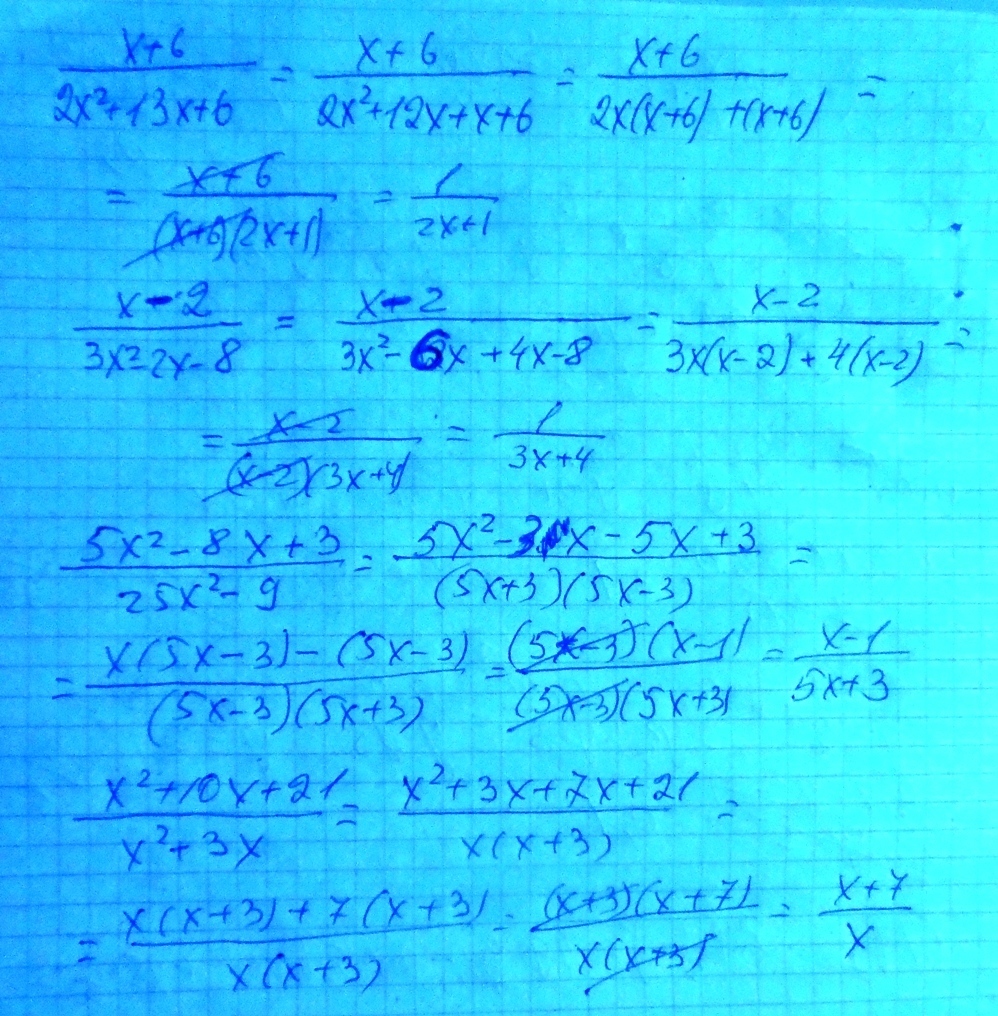 \frac{x+6}{2x^2+13x+6} = \frac{x+6}{2x^2+12x+x+6} = \frac{x+6}{2x(x+6)+(x+6)} =
= \frac{x+6}{(x+6)(2x+1)} = \frac{1}{2x+1}
\frac{x-2}{3x^2-2x-8} = \frac{x-2}{3x^2-6x+4x-8} = \frac{x-2}{3x(x-2)+4(x-2)} =
= \frac{x-2}{(x-2)(3x+4)} = \frac{1}{3x+4}
\frac{5x^2-8x+3}{25x^2-9} = \frac{5x^2-3x-5x+3}{(5x+3)(5x-3)} =
= \frac{x(5x-3)-(5x-3)}{(5x-3)(5x+3)} = \frac{(5x-3)(x-1)}{(5x-3)(5x+3)} = \frac{x-1}{5x+3}
\frac{x^2+10x+21}{x^2+3x} = \frac{x^2+3x+7x+21}{x(x+3)} =
= \frac{x(x+3)+7(x+3)}{x(x+3)} = \frac{(x+3)(x+7)}{x(x+3)} = \frac{x+7}{x}